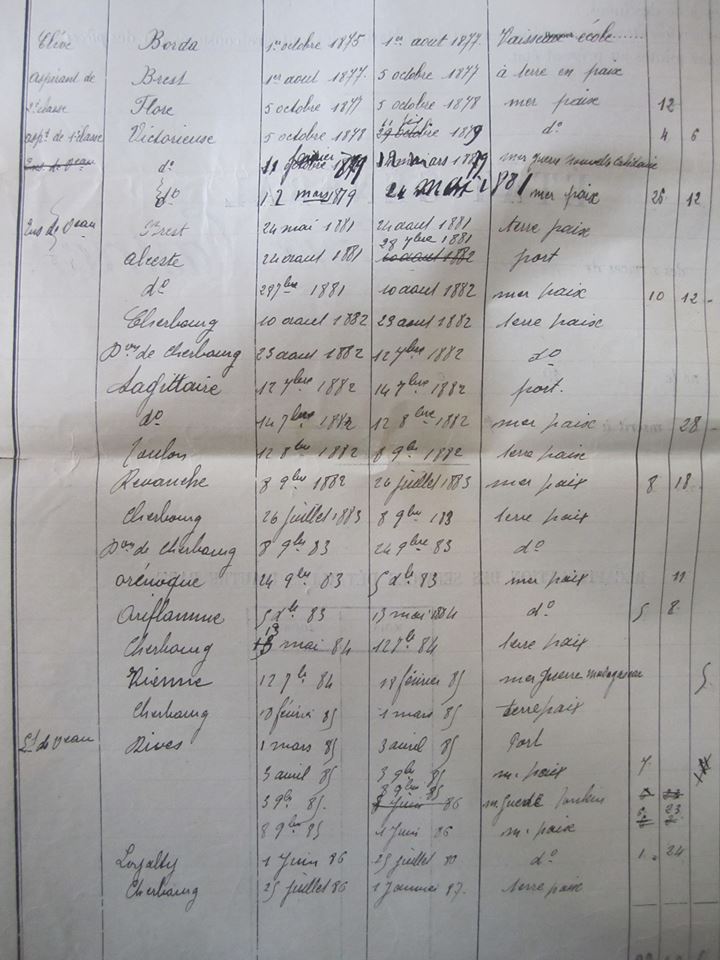 Elève Borda 1er octobre 1875 1er aout 1877. Vaisseau école
aspirant de Brest 1er aout 1877. 5 octobre 1877 à terre en paix
2e classe Flore 5 octobre 1877 5 octobre 1878 mer paix 12
aspt de 1e classe Victorieuse 5 octobre 1878 1879 do 4 6
Ens de Veau do 1879 mars 1879 mer guerre nouvelle Calédonie
do 12 mars 1879 24 mai 1881 mer paix 26 12
Ens de Veau Brest 24 mai 1881 24 aout 1881 terre paix
28 7bre 1881
alceste 24 aout 1881 10 aout 1882 port
do 28 7bre 1881 10 aout 1882 mer paix 10 12
Cherbourg 10 aout 1882 23 aout 1882 terre paix
Don de Cherbourg 23 aout 1882 12 7bre 1882 do
Sagittaire 12 7bre 1882 14 7bre 1882 port.
do 14 7bre 1882 12 8bre 1882 mer paix 28
Toulon 12 8bre 1882 8 9bre 1882 terre paix
Revanche 8 9bre 1882 26 juillet 1883 mer paix 8 18
Cherbourg 26 juillet 1883 8 9bre 183 terre paix
Don de Cherbourg 8 9bre 83 24 9bre 83 do
Orénoque 24 9bre 83 5 dbre 83 mer paix 11
Oriflamme 5 dbre 83 13 mai 1884 do 5 8
Cherbourg 13 mai 84 12 7bre 84 terre paix
Vienne 12 7bre 84 18 février 85 mer guerre madagascar 5
Cherbourg 18 février 85 1 mars 85 terre paix
Lt de Veau Rives 1 mars 85 3 avril 85 Port
3 avril 85 3 9bre 85 m. paix 7
8 9bre 85
3 9bre 85. 8 Juin 86 m guerre Tonkin 23
8 9bre 85 1 Juin 86 m. paix
Loyalty 1 Juin 86 25 juillet 86 do 1. 24
Cherbourg 25 juillet 86 1 Janvier 87. terre paix